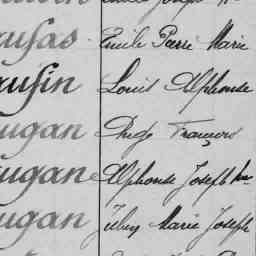 Joseph
ufas Emile Pierre Marie
ufin Louis Alphonse
ugan Ange François
ugan Alphonse Joseph Me
ugan Jules Marie Joseph